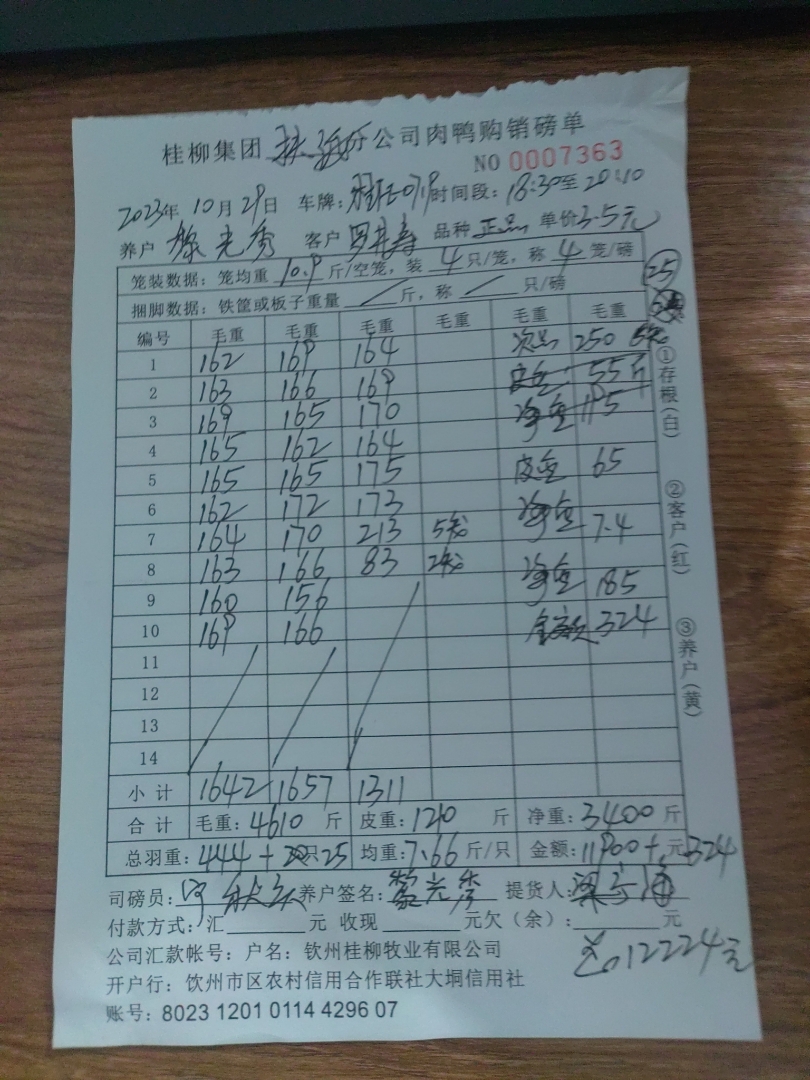 桂柳集团 公司肉鸭购销磅单
NO 0007363
2023年 10月29日 车牌: 时间段: 18:30至 20:10
养户 黎光秀 客户 品种 正品 单价 3.5元
笼装数据: 笼均重 10.9 斤/空笼, 装 4 只/笼, 称 4 笼/磅
捆脚数据: 铁筐或板子重量 / 斤, 称 / 只/磅
25
编号 毛重 毛重 毛重 毛重 毛重 毛重
1 162 169 164 次品 250
2 163 166 169 皮重 55斤
3 169 165 170 净重 195
4 165 162 164
5 165 165 175 皮重 65
6 162 172 173 净重
7 164 170 213 5 7.4
8 163 166 83 2 净重
9 160 156 185
10 169 166 金额 324
11
12
13
14
小计 1642 1657 1311
合计 毛重: 4610 斤 皮重: 1210 斤 净重: 3400 斤
总羽重: 444 + 只 25 均重: 7.66 斤/只 金额: 11900 + 元 324
司磅员: 养户签名: 黎光秀 提货人:
付款方式: 汇 元 收现 元欠(余): 元
公司汇款帐号: 户名: 钦州桂柳牧业有限公司
总 12224元
开户行: 钦州市区农村信用合作联社大垌信用社
账号: 8023 1201 0114 4296 07
①存根(白)
②客户(红)
③养户(黄)